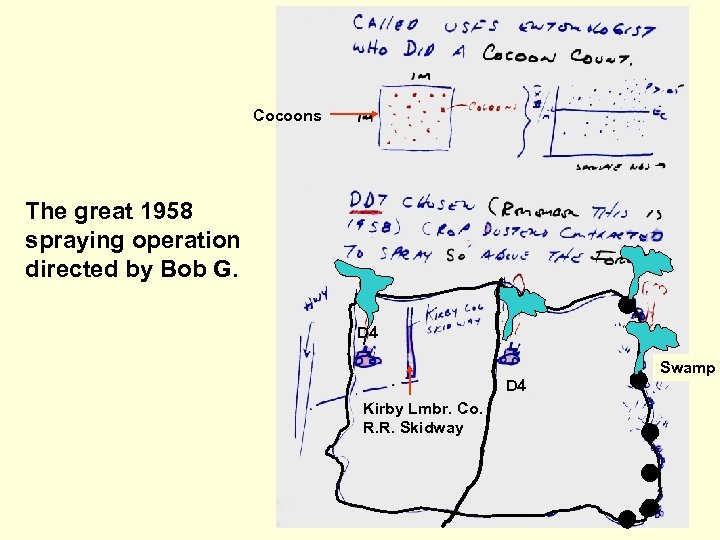 CALLED USFS ENTOMOLOGIST
WHO DID A COCOON COUNT.
1M
Cocoons
1M
COCOONS
SAMPLE NOS →
The great 1958
spraying operation
directed by Bob G.
DDT CHOSEN (REMEMBER THIS IS
1958) CROP DUSTERS CONTRACTED
TO SPRAY SO' ABOVE THE
HWY
KIRBY LOG
SKIDWAY
D4
Swamp
D4
Kirby Lmbr. Co.
R. R. Skidway